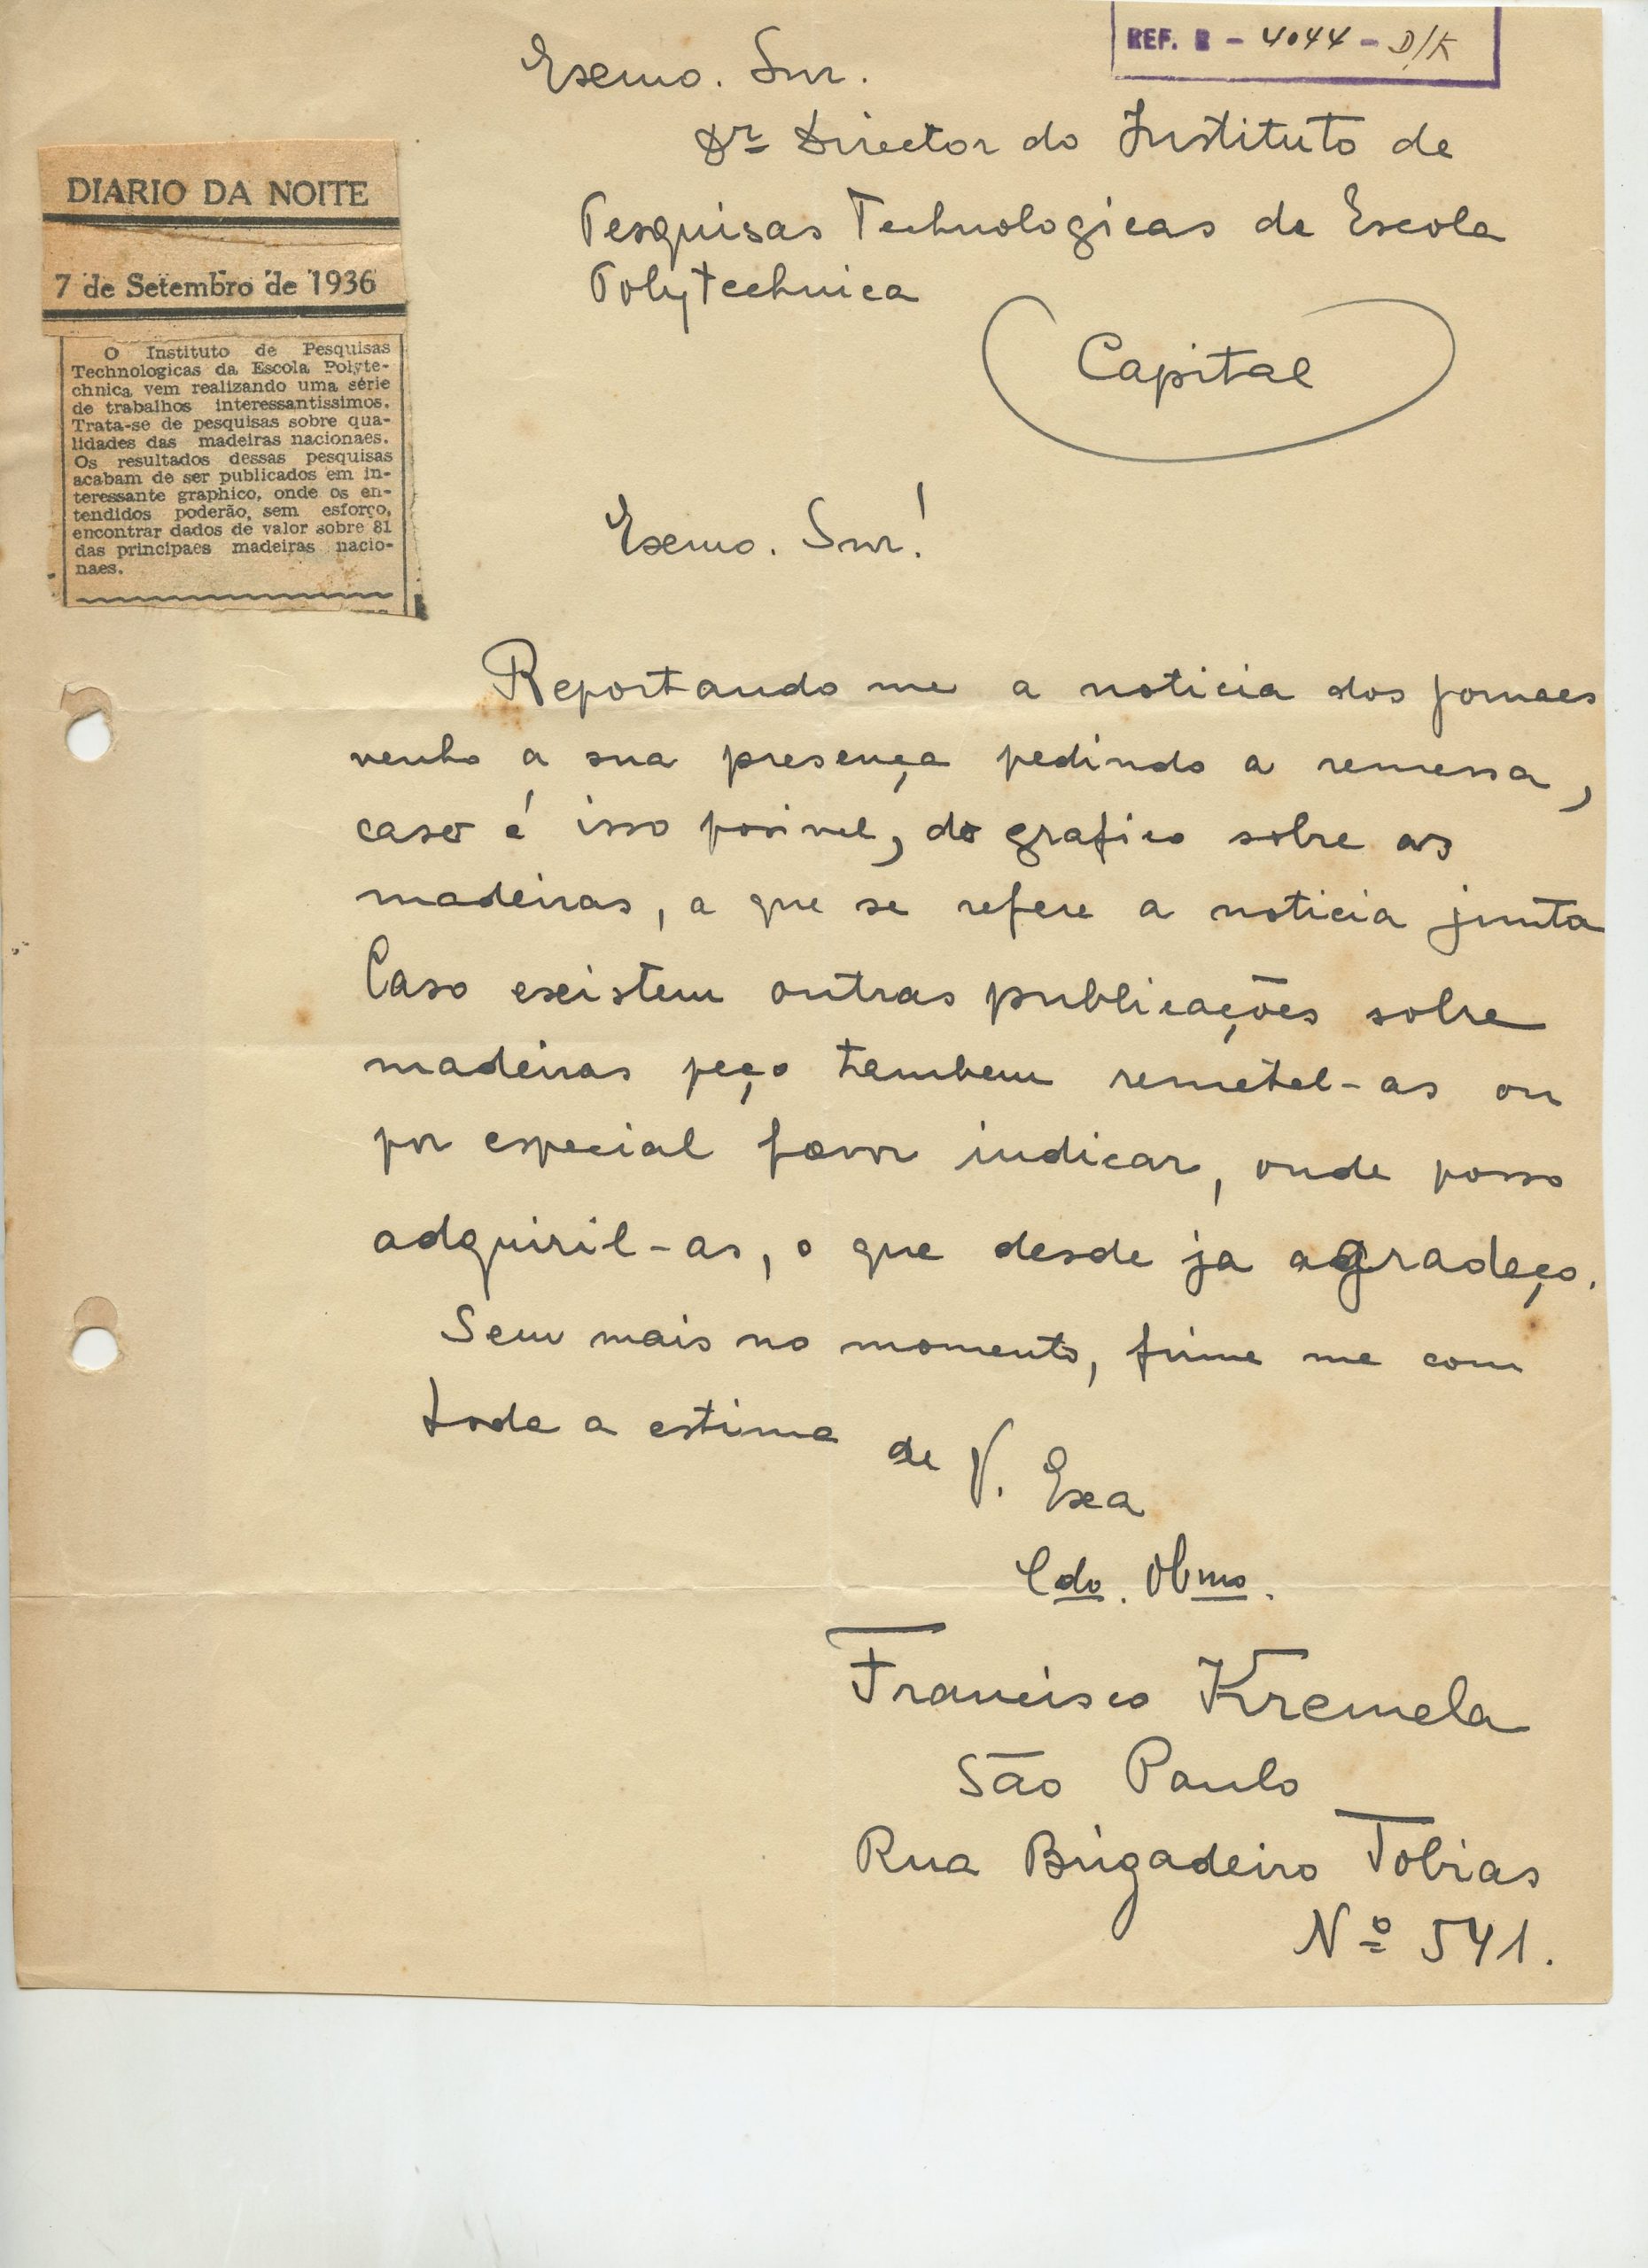 REF. R - 4044 - D/K
Exmo. Snr.
Dr Director do Instituto de
Pesquisas Technologicas da Escola
Polytechnica
Capital
DIARIO DA NOITE
7 de Setembro de 1936
O Instituto de Pesquisas
Technologicas da Escola Polyte-
chnica vem realizando uma série
de trabalhos interessantissimos.
Trata-se de pesquisas sobre qua-
lidades das madeiras nacionaes.
Os resultados dessas pesquisas
acabam de ser publicados em in-
teressante graphico, onde os en-
tendidos poderão, sem esforço,
encontrar dados de valor sobre 81
das principaes madeiras nacio-
naes.
Exmo. Snr!
Reportando me a noticia dos jornaes
venho a sua presença pedindo a remessa,
caso é isso posivel, do grafico sobre as
madeiras, a que se refere a noticia junta
Caso existem outras publicações sobre
madeiras peço tambem remetel-as ou
por especial favor indicar, onde posso
adquiril-as, o que desde ja agradeço.
Sem mais no momento, firme me com
toda a estima de V. Exa
Cdo. Obmo.
Francisco Kremela
São Paulo
Rua Brigadeiro Tobias
Nº 541.